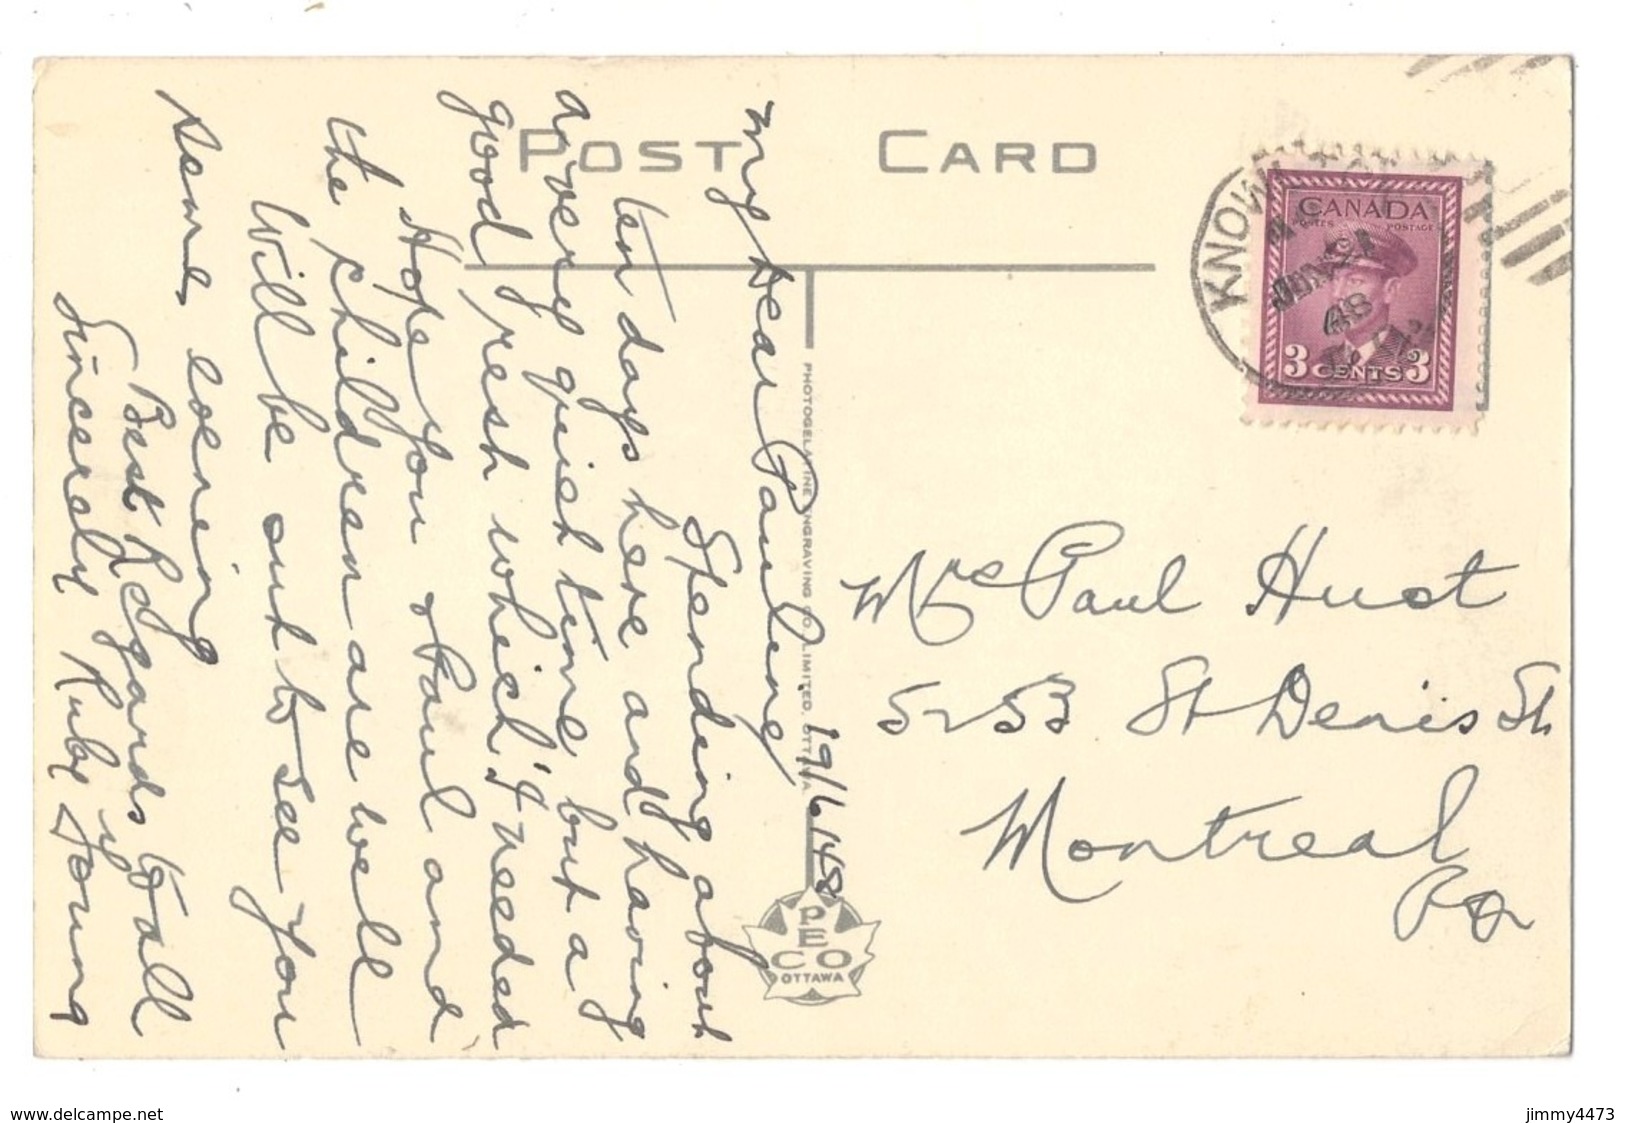 POST CARD
19/6/48
My Dear Pauline
Spending about
ten days here and having
a very quiet time but a
good fresh which I needed
Hope you & Paul and
the children are well
Will be out to see you
some evening
Best Regards to all
Sincerely Ruby Young
PHOTOGELATINE ENGRAVING CO. LIMITED, OTTAWA
PECO
OTTAWA
CANADA
POSTES POSTAGE
3 CENTS 3
KNOWL
JUN 21
48
Mrs Paul Hust
5253 St Denis St
Montreal
PQ
www.delcampe.net
jimmy4473